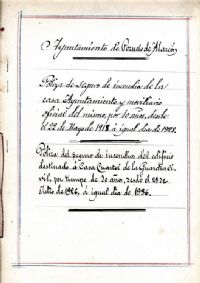 Ayuntamiento de Pozuelo de Alarcón
Póliza de seguro de incendio de la
casa Ayuntamiento y mobiliario
oficial del mismo, por 10 años, desde
el 22 de Mayo de 1918 à igual dia de 1928.
Póliza del seguro de incendios del edificio
destinado à Casa Cuartel de la Guardia Ci-
vil, por tiempo de 30 años, desde el 28 de
Julio de 1926, à igual dia de 1956.